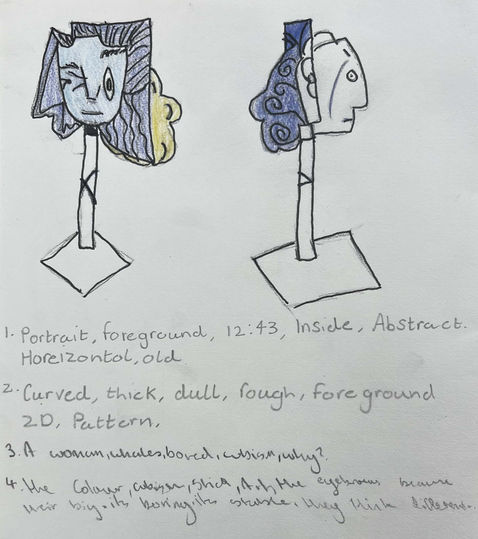 1. Portrait, foreground, 12:43, Inside, Abstract.
Horeizontol, old
2. Curved, thick, dull, rough, foreground
2D, Pattern,
3. A woman, whales, bored, cubism, why?
4. the Colour, cubism, stick, the eyebrows because
their big. its boring, its stable. they think different.